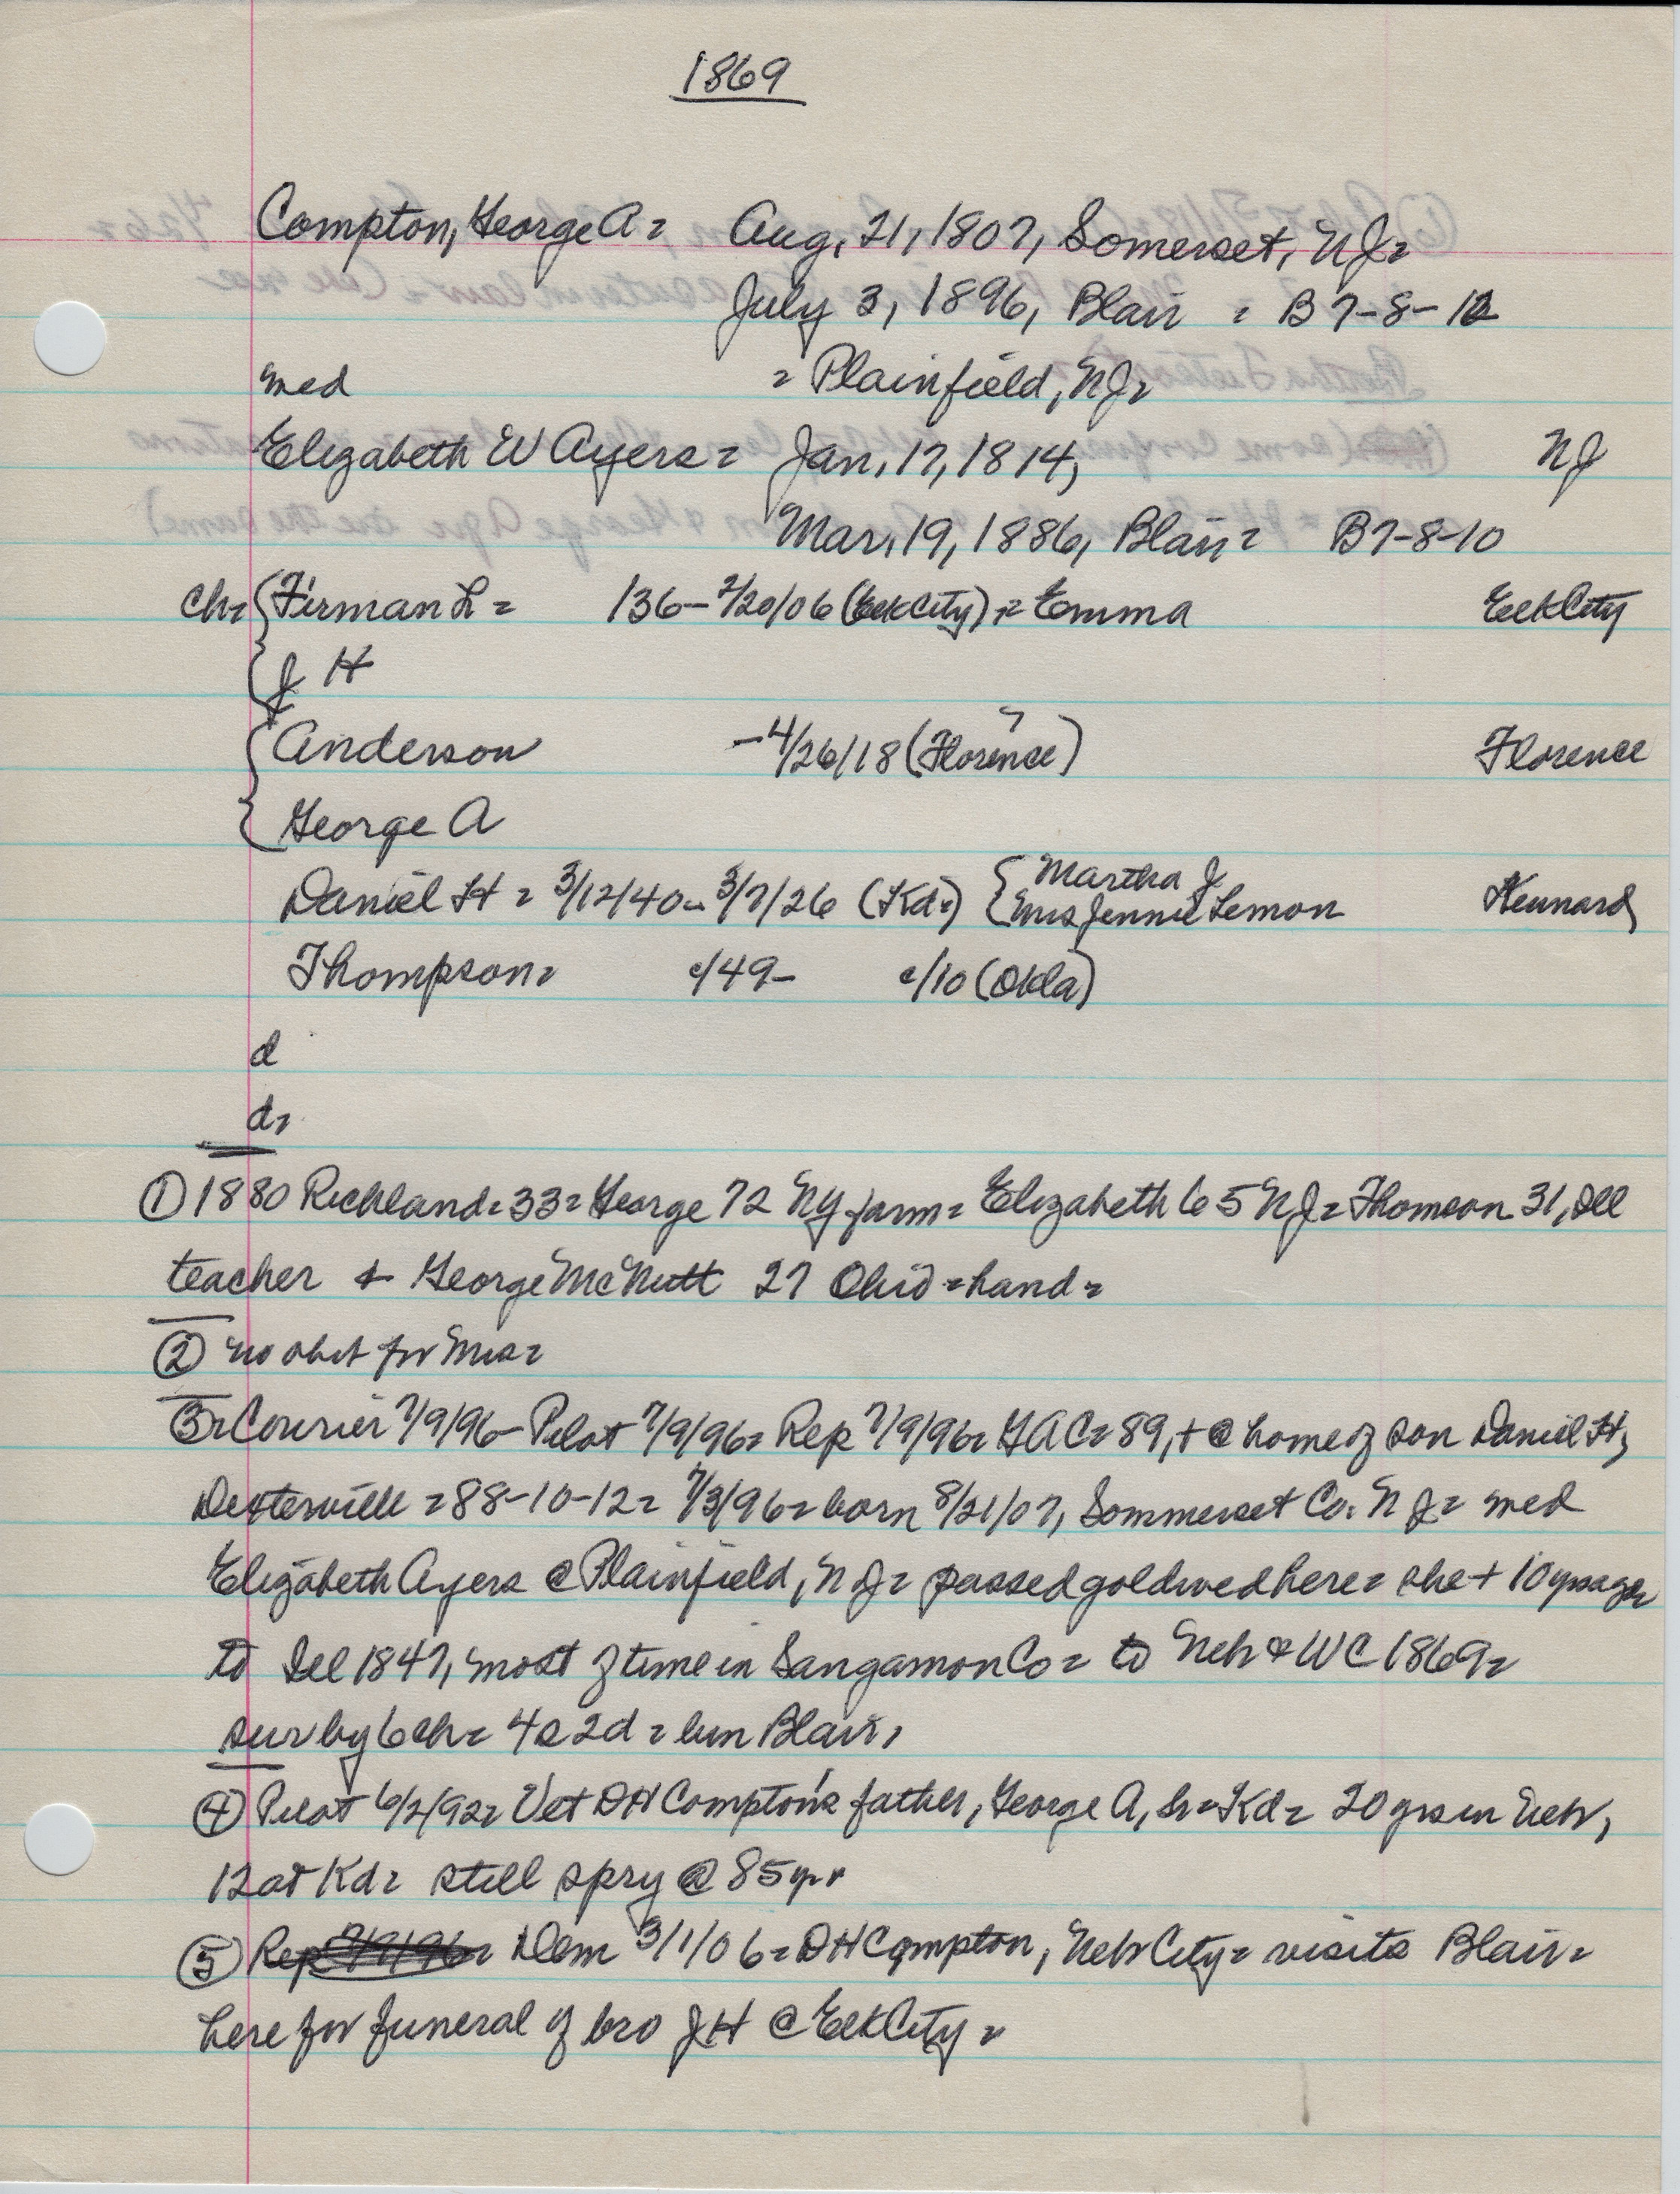 1869
Compton, George A = Aug, 21, 1807, Somerset, NJ=
July 3, 1896, Blair = B 7-8-12
med = Plainfield, NJ=
Elizabeth W Ayers = Jan, 17, 1814, NJ
Mar, 19, 1886, Blair = B7-8-10
Ch= { Firman L = 136- 2/20/06 (Elk City) = Emma Elk City
{ J H
{ Anderson -4/26/18 (Florence) ? Florence
{ George A
Daniel H = 3/12/40 - 3/7/26 (Kd=) { Martha J
{ Mrs Jennie Lemon Kennard
Thompson= c/49- c/10 (Okla)
d
d=
① 1880 Richland = 33 = George 72 NY farm = Elizabeth 65 NJ = Thomson 31, Ill
teacher & George McNutt 27 Ohio = hand =
② no obit for Mrs =
③= Courier 7/9/96- Pilot 7/9/96= Rep 7/9/96= GAC= 89, + @ home of son Daniel H,
Dexterville = 88-10-12 = 7/3/96= born 8/21/07, Sommerset Co. NJ= med
Elizabeth Ayers @ Plainfield, NJ= passed goldwed here= she + 10 yrs ago=
to Ill 1847, most of time in Sangamon Co = to Neb & WC 1869=
sur by 6 ch= 4s 2d = bur Blair,
④ Pilot 6/2/92= Vet DH Compton's father, George A, Sr = Kd= 20 yrs in Neb,
12 at Kd= still spry @ 85 yr=
⑤ Rep 7/9/96= Dem 3/1/06 = DH Compton, Neb City= visits Blair=
here for funeral of bro JH @ Elk City=